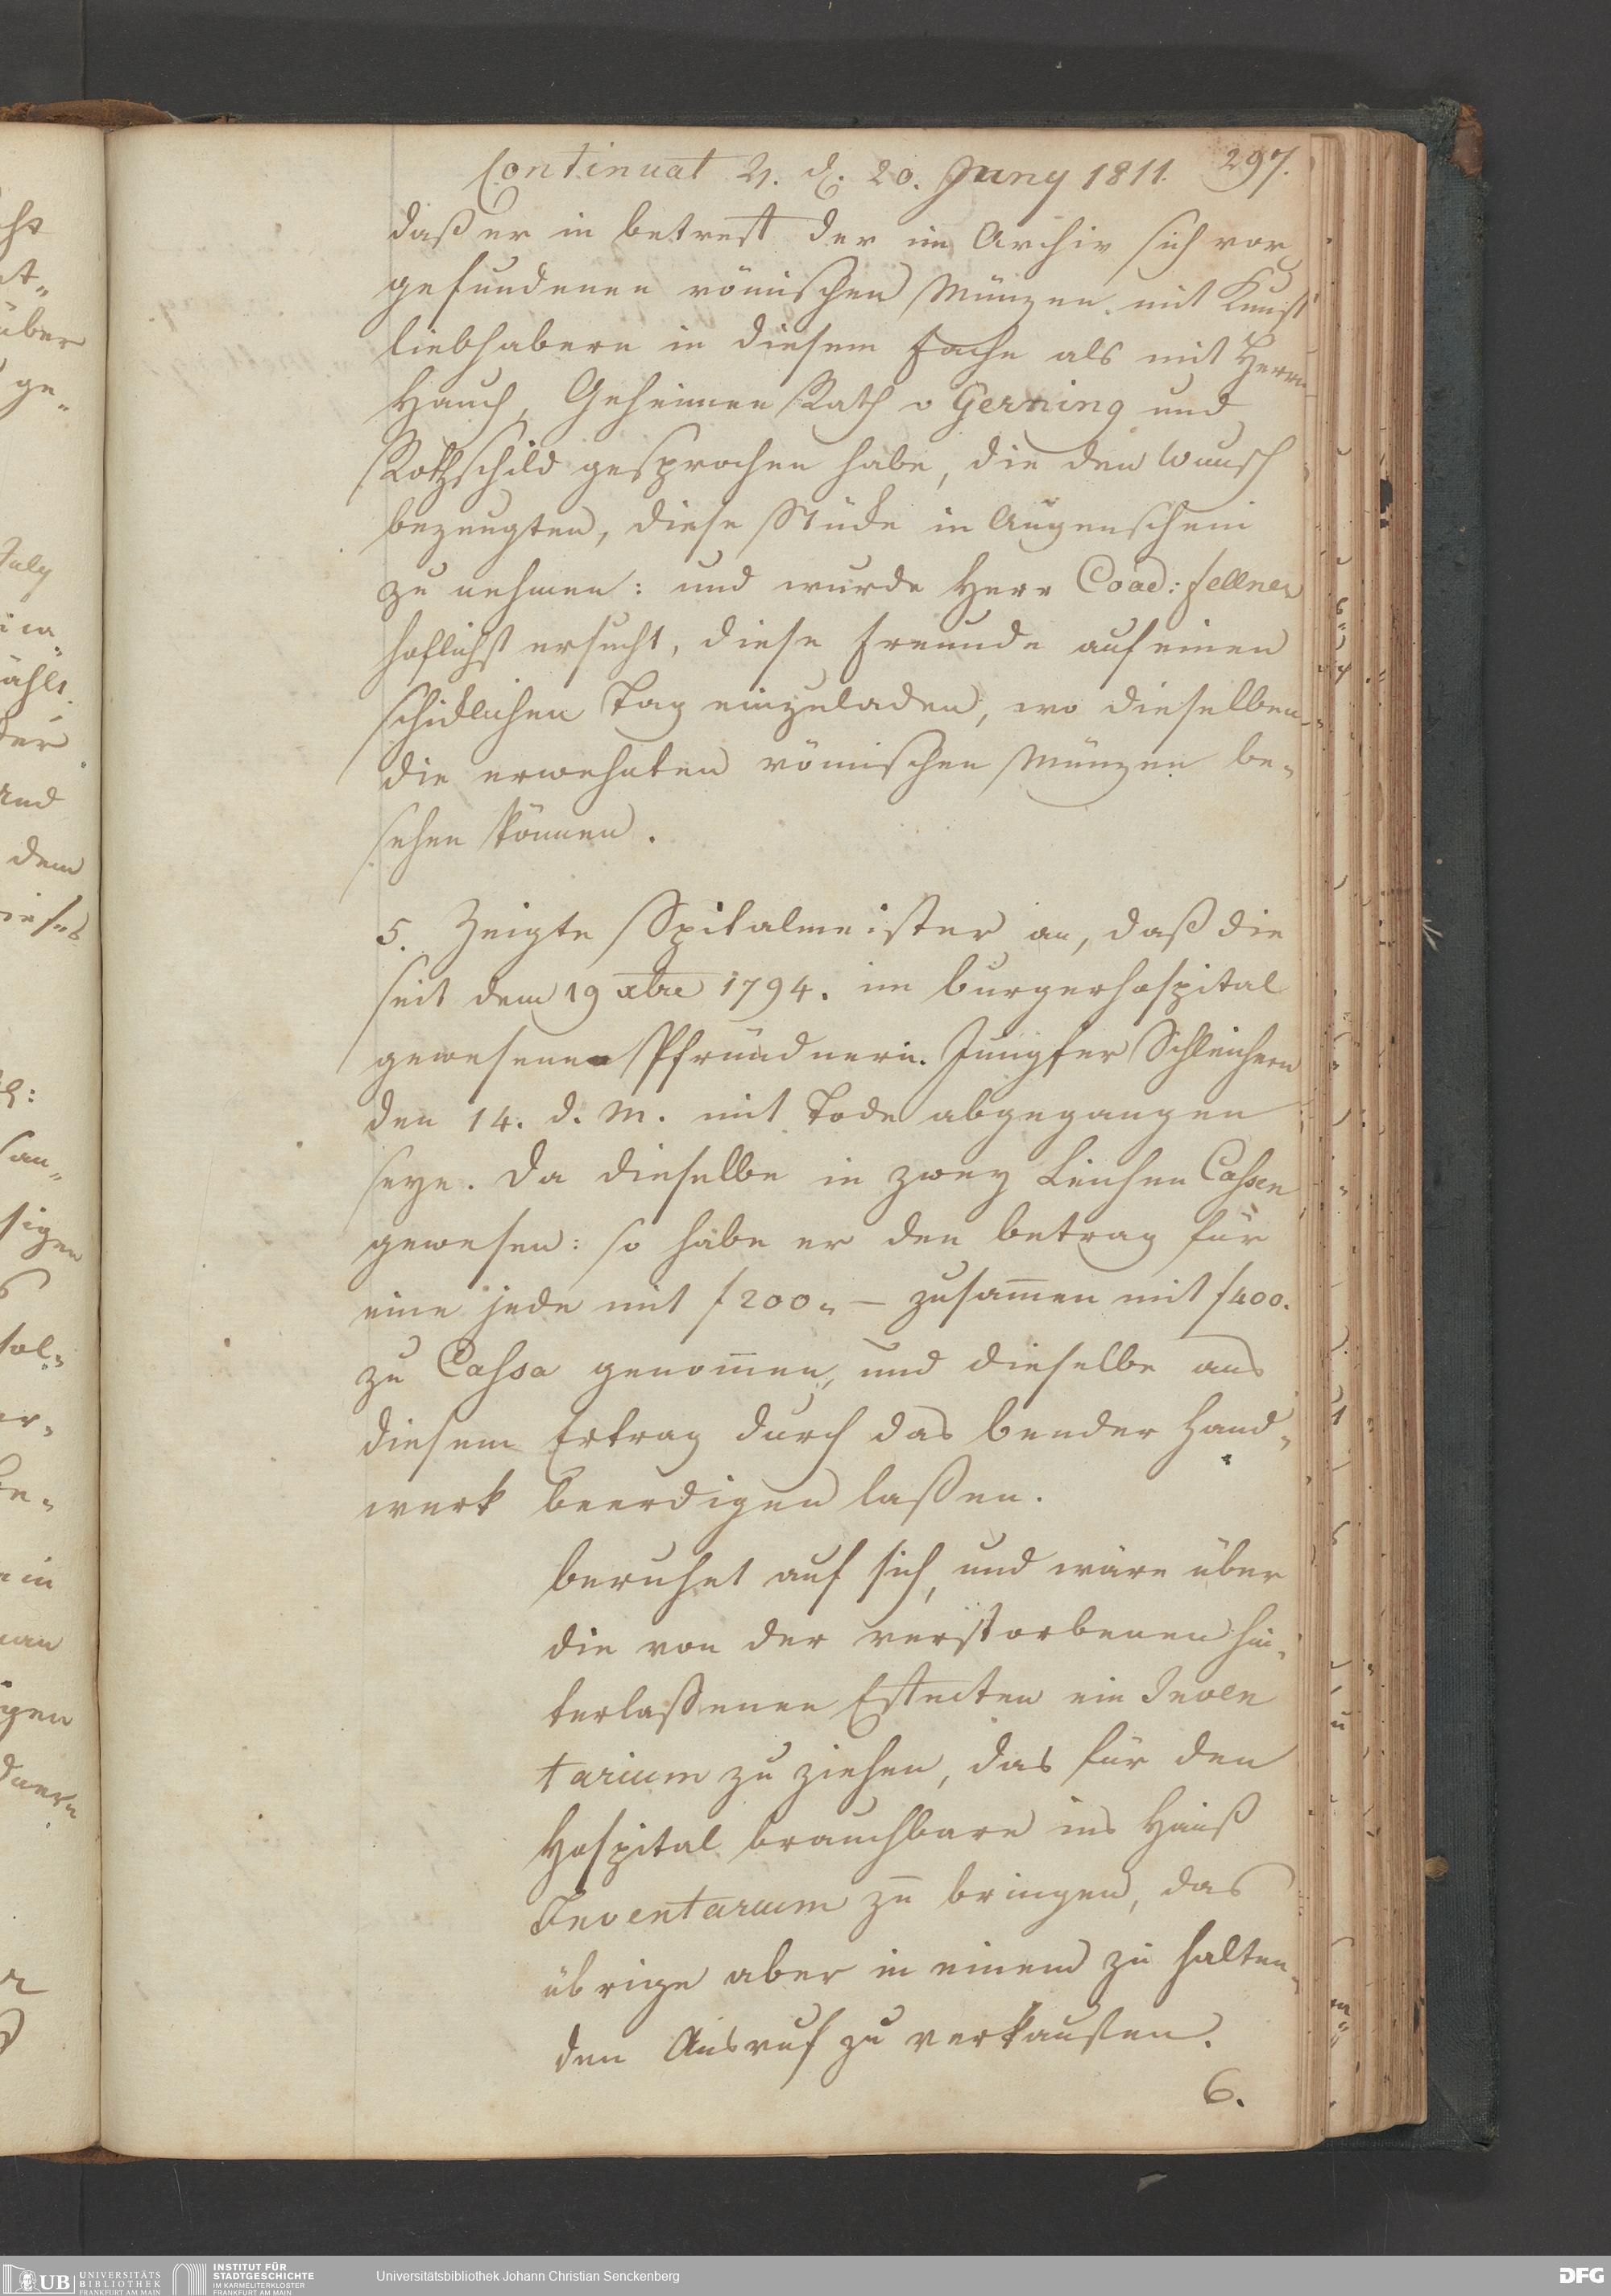 Continuat ♃. d. 20. Juny 1811. 297.
daß er in betreff der im Archiv sich vor
gefundenen römischen Münzen mit Kunst
liebhabern in diesem Fache als mit Herrn
Hauch, Geheimen Rath v Gerning und
Rothschild gesprochen habe, die den Wunsch
bezeugten, diese Stücke in Augenschein
zu nehmen: und wurde Herr Coad: Fellner
höflichst ersucht, diese Freunde auf einen
schicklichen Tag einzuladen, wo dieselben
die erwehnten römischen Münzen be-
sehen können.
5. Zeigte Spitalmeister an, daß die
seit dem 19 xbre 1794. im burgerhospital
gewesene Pfründnerin Jungfer Schleichern
den 14. d. M. mit Tode abgegangen
seye. Da dieselbe in zwey Leichen Cassen
gewesen: so habe er den betrag für
eine jede mit f 200„ — zusam̄en mit f 400.
zu Cassa genom̄en, und dieselbe aus
diesem Ertrag durch das bender Hand-
werk beerdigen laßen.
beruhet auf sich, und wäre über
die von der verstorbenen hin-
terlaßenen Effecten ein Inven
tarium zu ziehen, das für den
Hospital brauchbare ins Hauß
Inventarium zu bringen, das
übrige aber in einem zu halten-
den Ausruf zu verkaufen.
6.
UB UNIVERSITÄTS
BIBLIOTHEK
FRANKFURT AM MAIN
INSTITUT FÜR
STADTGESCHICHTE
IM KARMELITERKLOSTER
FRANKFURT AM MAIN
Universitätsbibliothek Johann Christian Senckenberg
DFG